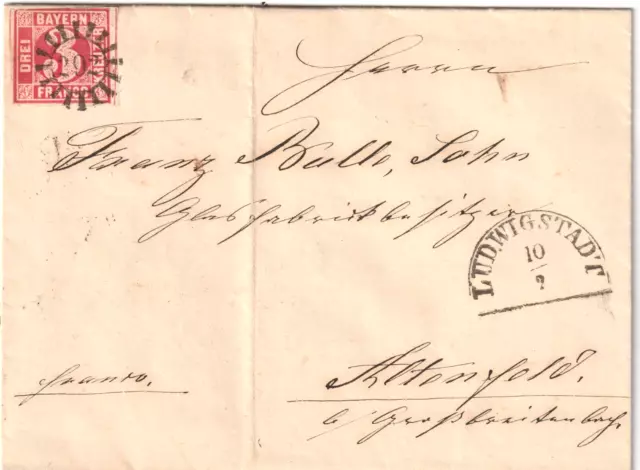 BAYERN
DREI
KREUZER
FRANCO
Herrn
Franz Balle, Sohn
Glasfabrikbesitzer
LUDWIGSTADT
10
Altenfeld.
franco.
b/ Großbreitenbach.